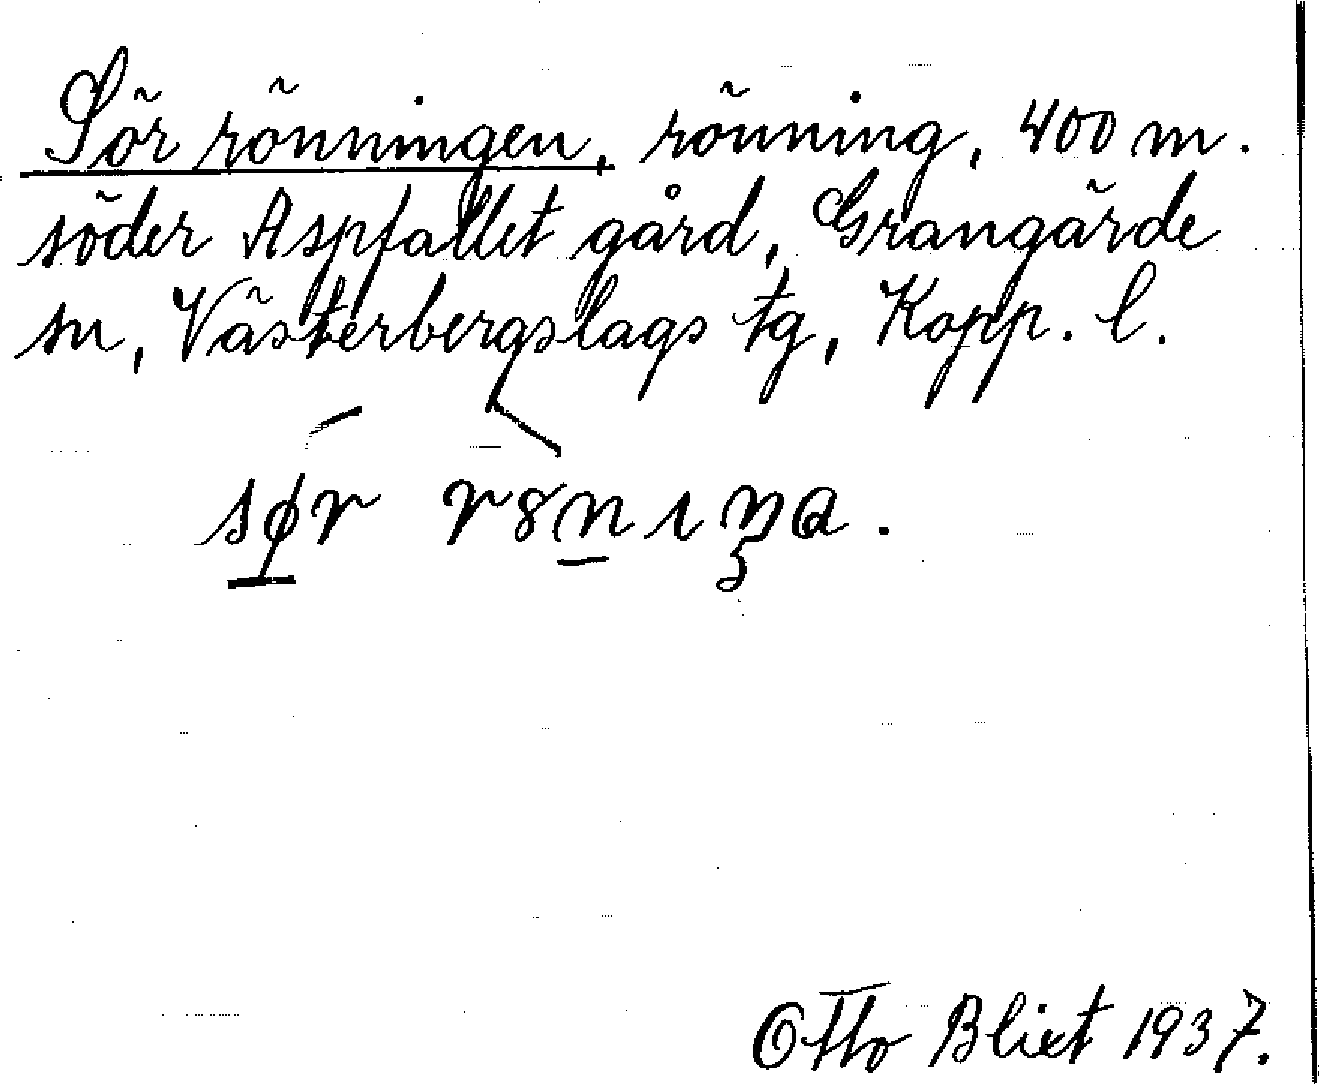 Sör rönningen, rönning, 400 m.
söder Aspfallet gård, Grangärde
sn, Västerbergslags tg, Kopp. l.
sør r8nıŋa.
Otto Blixt 1937.